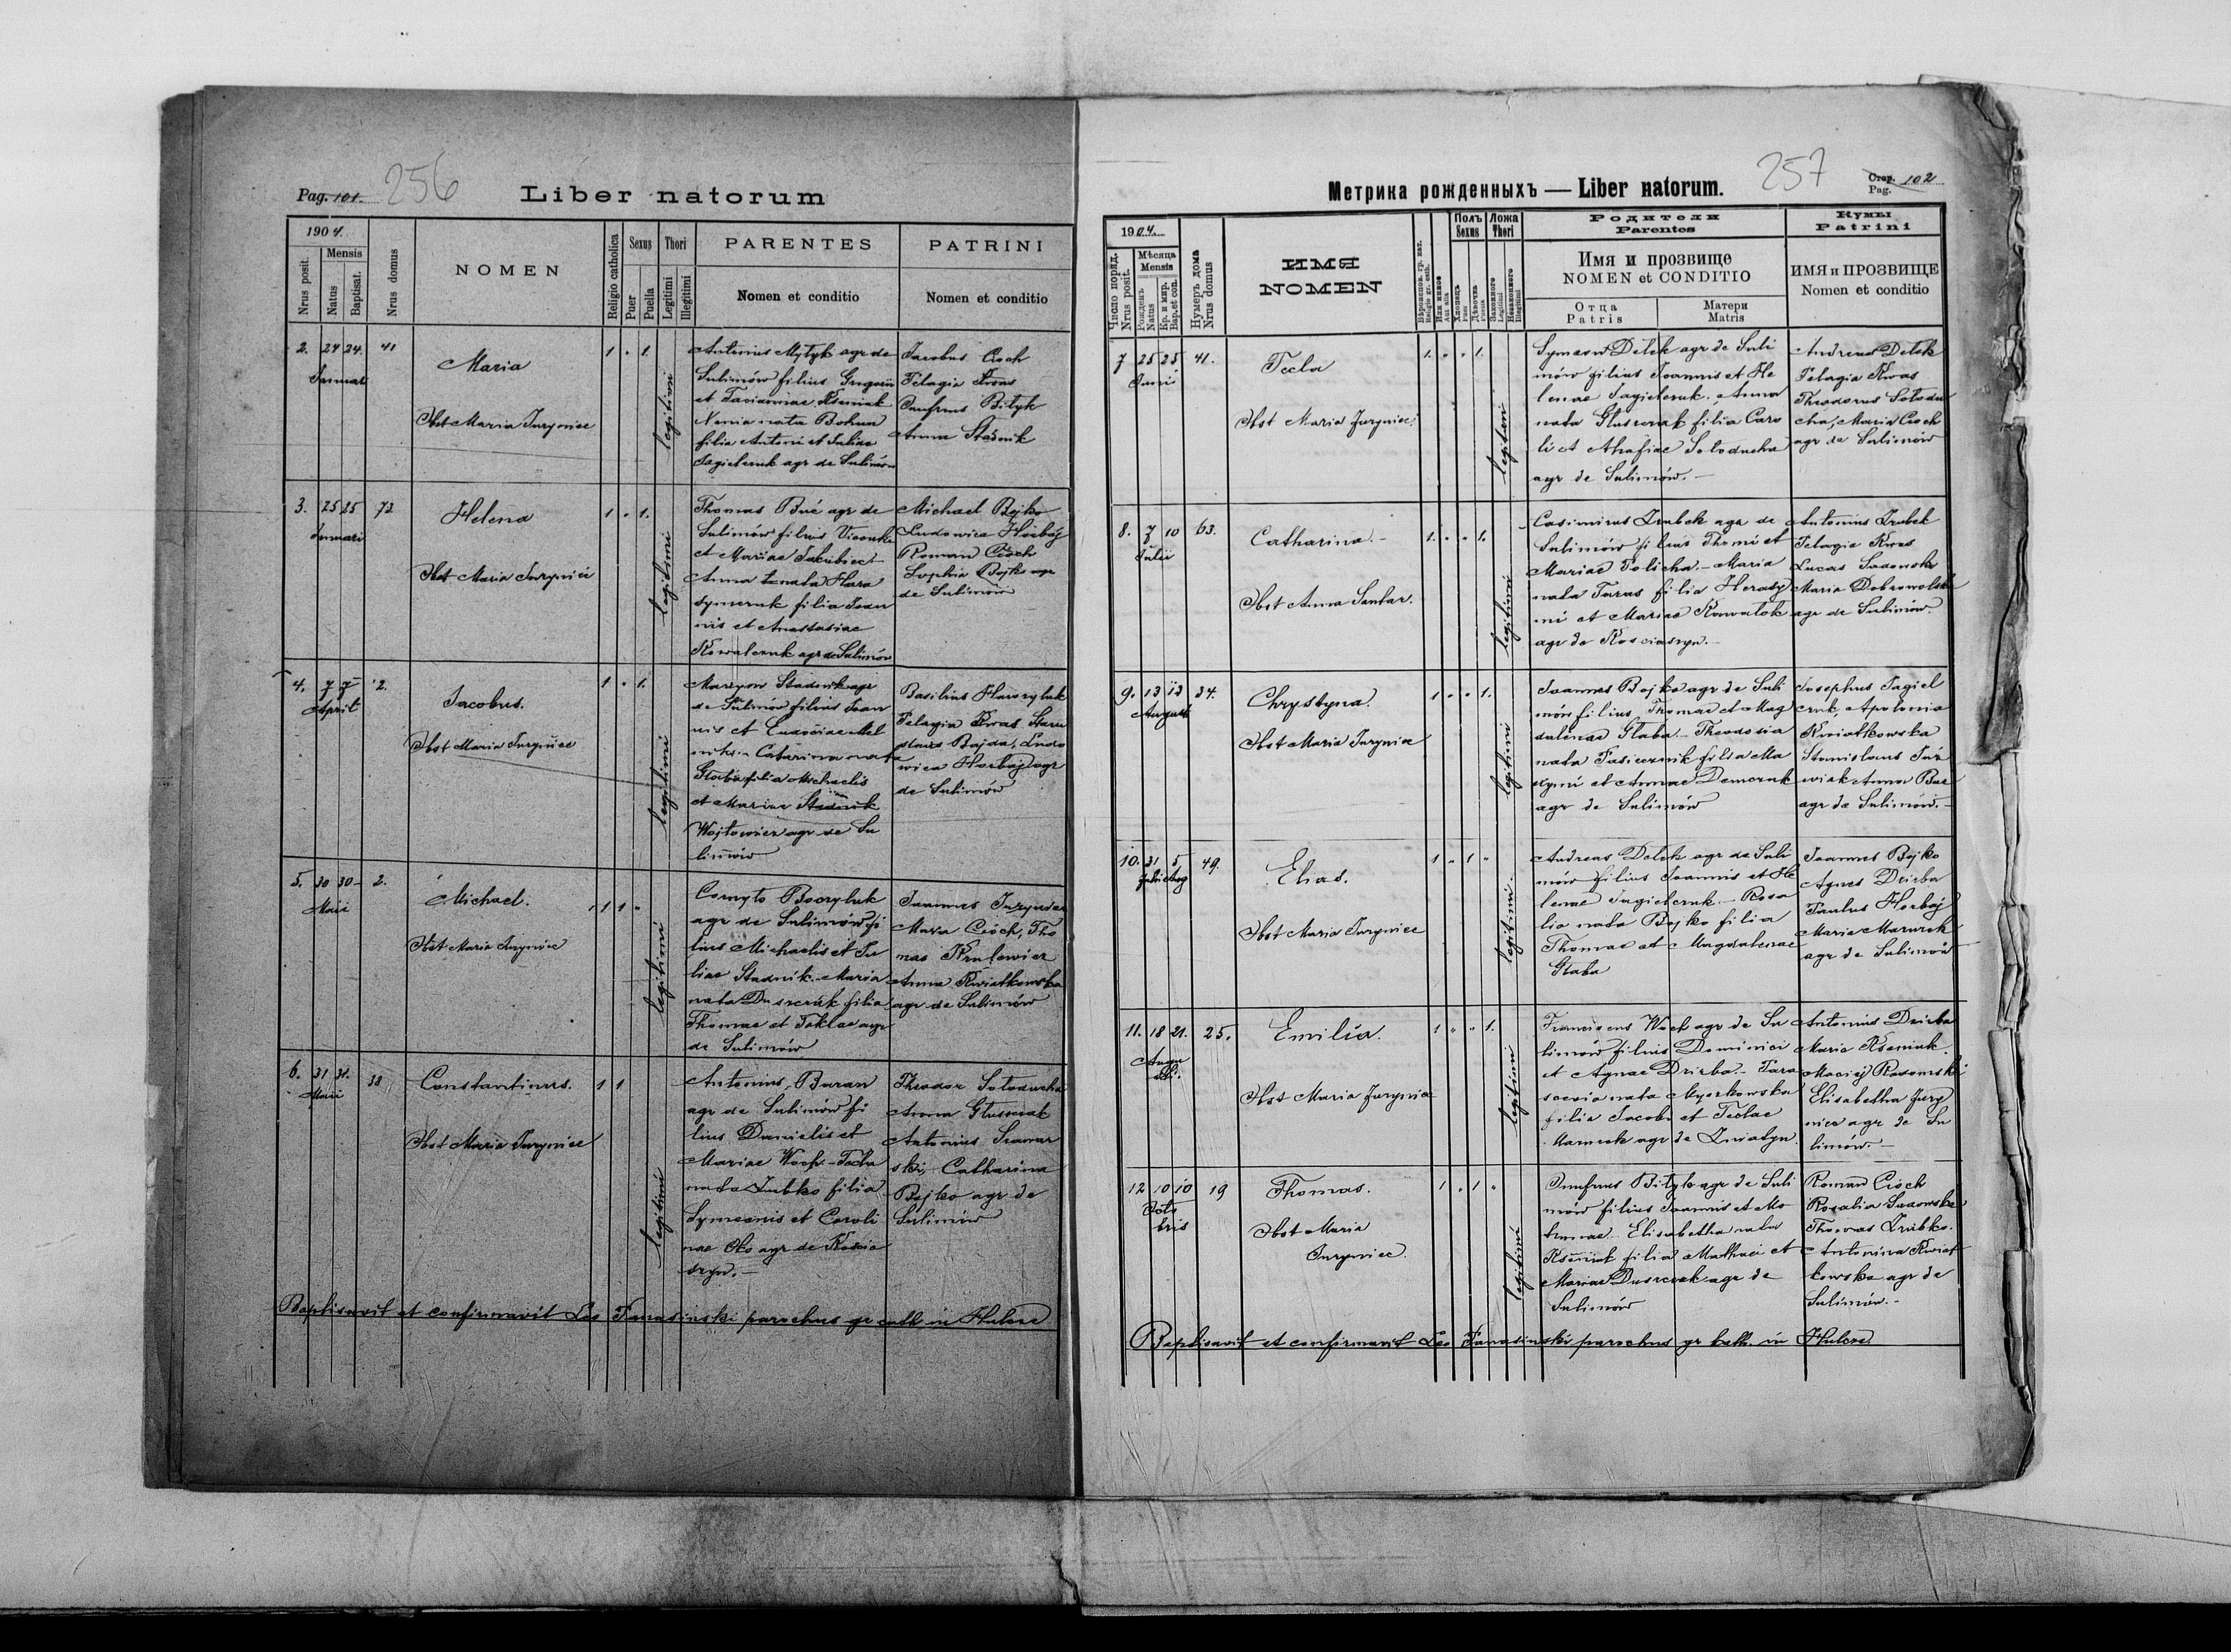 Pag. 101. 256 Liber natorum
1904.
Nrus posit.
Mensis
Natus
Baptisat.
Nrus domus
NOMEN
Religio catholica
Sexus
Puer
Puella
Thori
Legitimi
Illegitimi
PARENTES
Nomen et conditio
PATRINI
Nomen et conditio
2. 24 24. 41
Januar
Maria
Obst Maria Juryniec
1 . 1.
legitimi
Antonius Mytyk agr de
Sulimów filius Gregorii
et Tacianniae Kseniak
nata Bohun
filia Antoni et Juliae
Jagielczuk agr de Sulimów
Jacobus Cioch
Pelagia Kwas
Onufrius Bityk
Anna Stadnik
3. 25 25 72
Januari
Helena
Obst Maria Juryniec
1 . 1.
legitimi
Thomas Buć agr de
Sulimów filius Vicenti
et Mariae Jakubiec
Anna nata Hara
symczuk filia Joan
nis et Anastasiae
Kowalczuk agr de Sulimów
Michael Bojko
Ludowica Horbaj
Roman Cioch
Sophia Bojko agr
de Sulimów
4. 7 7 2.
April
Jacobus.
Obst Maria Juryniec
1 . 1.
legitimi
Maryon Stadnik agr
de Sulimów filius Joan
nis et Eudociae Mel
nyk. - Catarina nata
Głaba filia Michaelis
et Mariae Stadnik
Wojtowicz agr de Su
limów
Basilius Hawryluk
Pelagia Kwas Stani
slaus Bajda, Ludo
wica Horbaj agr
de Sulimów
5. 30 30 2.
Maii
Michael.
Obst Maria Juryniec
1 1 .
legitimi
agr de Sulimów fi
lius Michaelis et Ju
liae Stadnik - Maria
nata Duszczuk filia
Thomae et Teklae agr
de Sulimów
Joannes Juryniec
Maria Cioch, Tho
mas Krulewicz
Anna Kwiatkowska
agr de Sulimów
6. 31 31. 38
Maii
Constantinus.
Obst Maria Juryniec
1 1
legitimi
Antonius Baran
agr de Sulimów fi
lius Danielis et
Mariae Woch - Tecla
nata Zubko filia
Symeonis et Caroli
nae Oko agr de Koscia
szyn. -
Theodor Sołoducha
Anna Głuszczak
Antonius
ski, Catharina
Bojko agr de
Sulimów
Baptisavit et confirmavit Leo Tanasinski parochus gr cath in Hulcze
Метрика рожденныхъ — Liber natorum. 257 Стор. Pag. 102
1904.
Число поряд.
Nrus posit.
Мѣсяца
Mensis
Рожденъ
Natus
Кр. и мир.
Bap. et con.
Нумеръ дома
Nrus domus
ИМЯ
NOMEN
Вѣроиспов. гр. кат.
Religio gr. cath.
Или инное
Aut alia
Полъ
Sexus
Хлопецъ
Puer
Дѣвочка
Puella
Ложа
Thori
Законного
Legitimi
Незаконного
Illegitimi
Родители
Parentes
Имя и прозвище
NOMEN et CONDITIO
Отца
Patris
Матери
Matris
Кумы
Patrini
ИМЯ и ПРОЗВИЩЕ
Nomen et conditio
7 25 25 41.
Junii
Tecla
Obst Maria Juryniec
1. . . 1.
legitimi
Symeon Delek agr de Suli
mów filius Joannis et He
lenae Jagielczuk. Anna
nata Głuszczak filia Caro
li et Ahafiae Sołoducha
agr de Sulimów. -
Andreas Delek
Pelagia Kwas
Theodorus Sołodu
cha, Maria Cioch
agr de Sulimów
8. 7 10 63.
Julii
Catharina. -
Obst Anna Santar.
1. . . 1.
legitimi
Casimirus Zrubek agr de
Sulimów filius Thomi et
Mariae Policha. - Maria
nata Taras filia Herasy
mi et Mariae Kowalok
agr de Kosciaszyn. -
Antonius Zrubek
Pelagia Kwas
Lucas Sadowski
Maria Dobrowolski
agr de Sulimów.
9. 13 13 34.
August
Chrystyna.
Obst Maria Juryniec
1 . . 1.
legitimi
Joannes Bojko agr de Suli
mów filius Thomae et Mag
dalenae Głaba. - Theodosia
nata Pasiecznik filia Ma
xymi et Annae Demczuk
agr de Sulimów
Josephus Jagiel
czuk, Apolonia
Kwiatkowska
Stanislaus Juz
wiak Anna Buc
agr de Sulimów. -
10. 31 5 49.
Juli Aug
Elias.
Obst Maria Juryniec
1 . 1 .
legitimi.
Andreas Delek agr de Suli
mów filius Joannis et He
lenae Jagielczuk. - Rosa
lia nata Bojko filia
Thomae et Magdalenae
Głaba
Joannes Bojko
Agnes Dzirba
Paulus Horbaj
Maria Mazurek
agr de Sulimów
11. 18 21. 25.
Augu
sti.
Emilia.
Obst Maria Juryniec
1 . . 1.
legitimi
Franciscus Woch agr de Su
limów filius Dominici
et Agnae Dzirba - Para
scevia nata Myszkowska
filia Jacobi et Teclae
Mazurek agr de Zniatyn.
Antonius Dzirba
Maria Kseniak.
Maciej Radomski
Elisabetha Jury
niec agr de Su
limów. -
12 10 10 19
Octo
bris
Thomas.
Obst Maria
Juryniec.
1 . 1 .
legitimi
Onufrius Bityk agr de Suli
mów filius Joannis et Mo
trunae. Elisabetha nata
Kseniak filia Mathaei et
Mariae Duszczak agr de
Sulimów
Roman Cioch
Rosalia Sadowska
Thomas Zrubko.
Antonina Kwiat
kowska agr de
Sulimów. -
Baptisavit et confirmavit Leo Tanasinski parochus gr cath. in Hulcze.